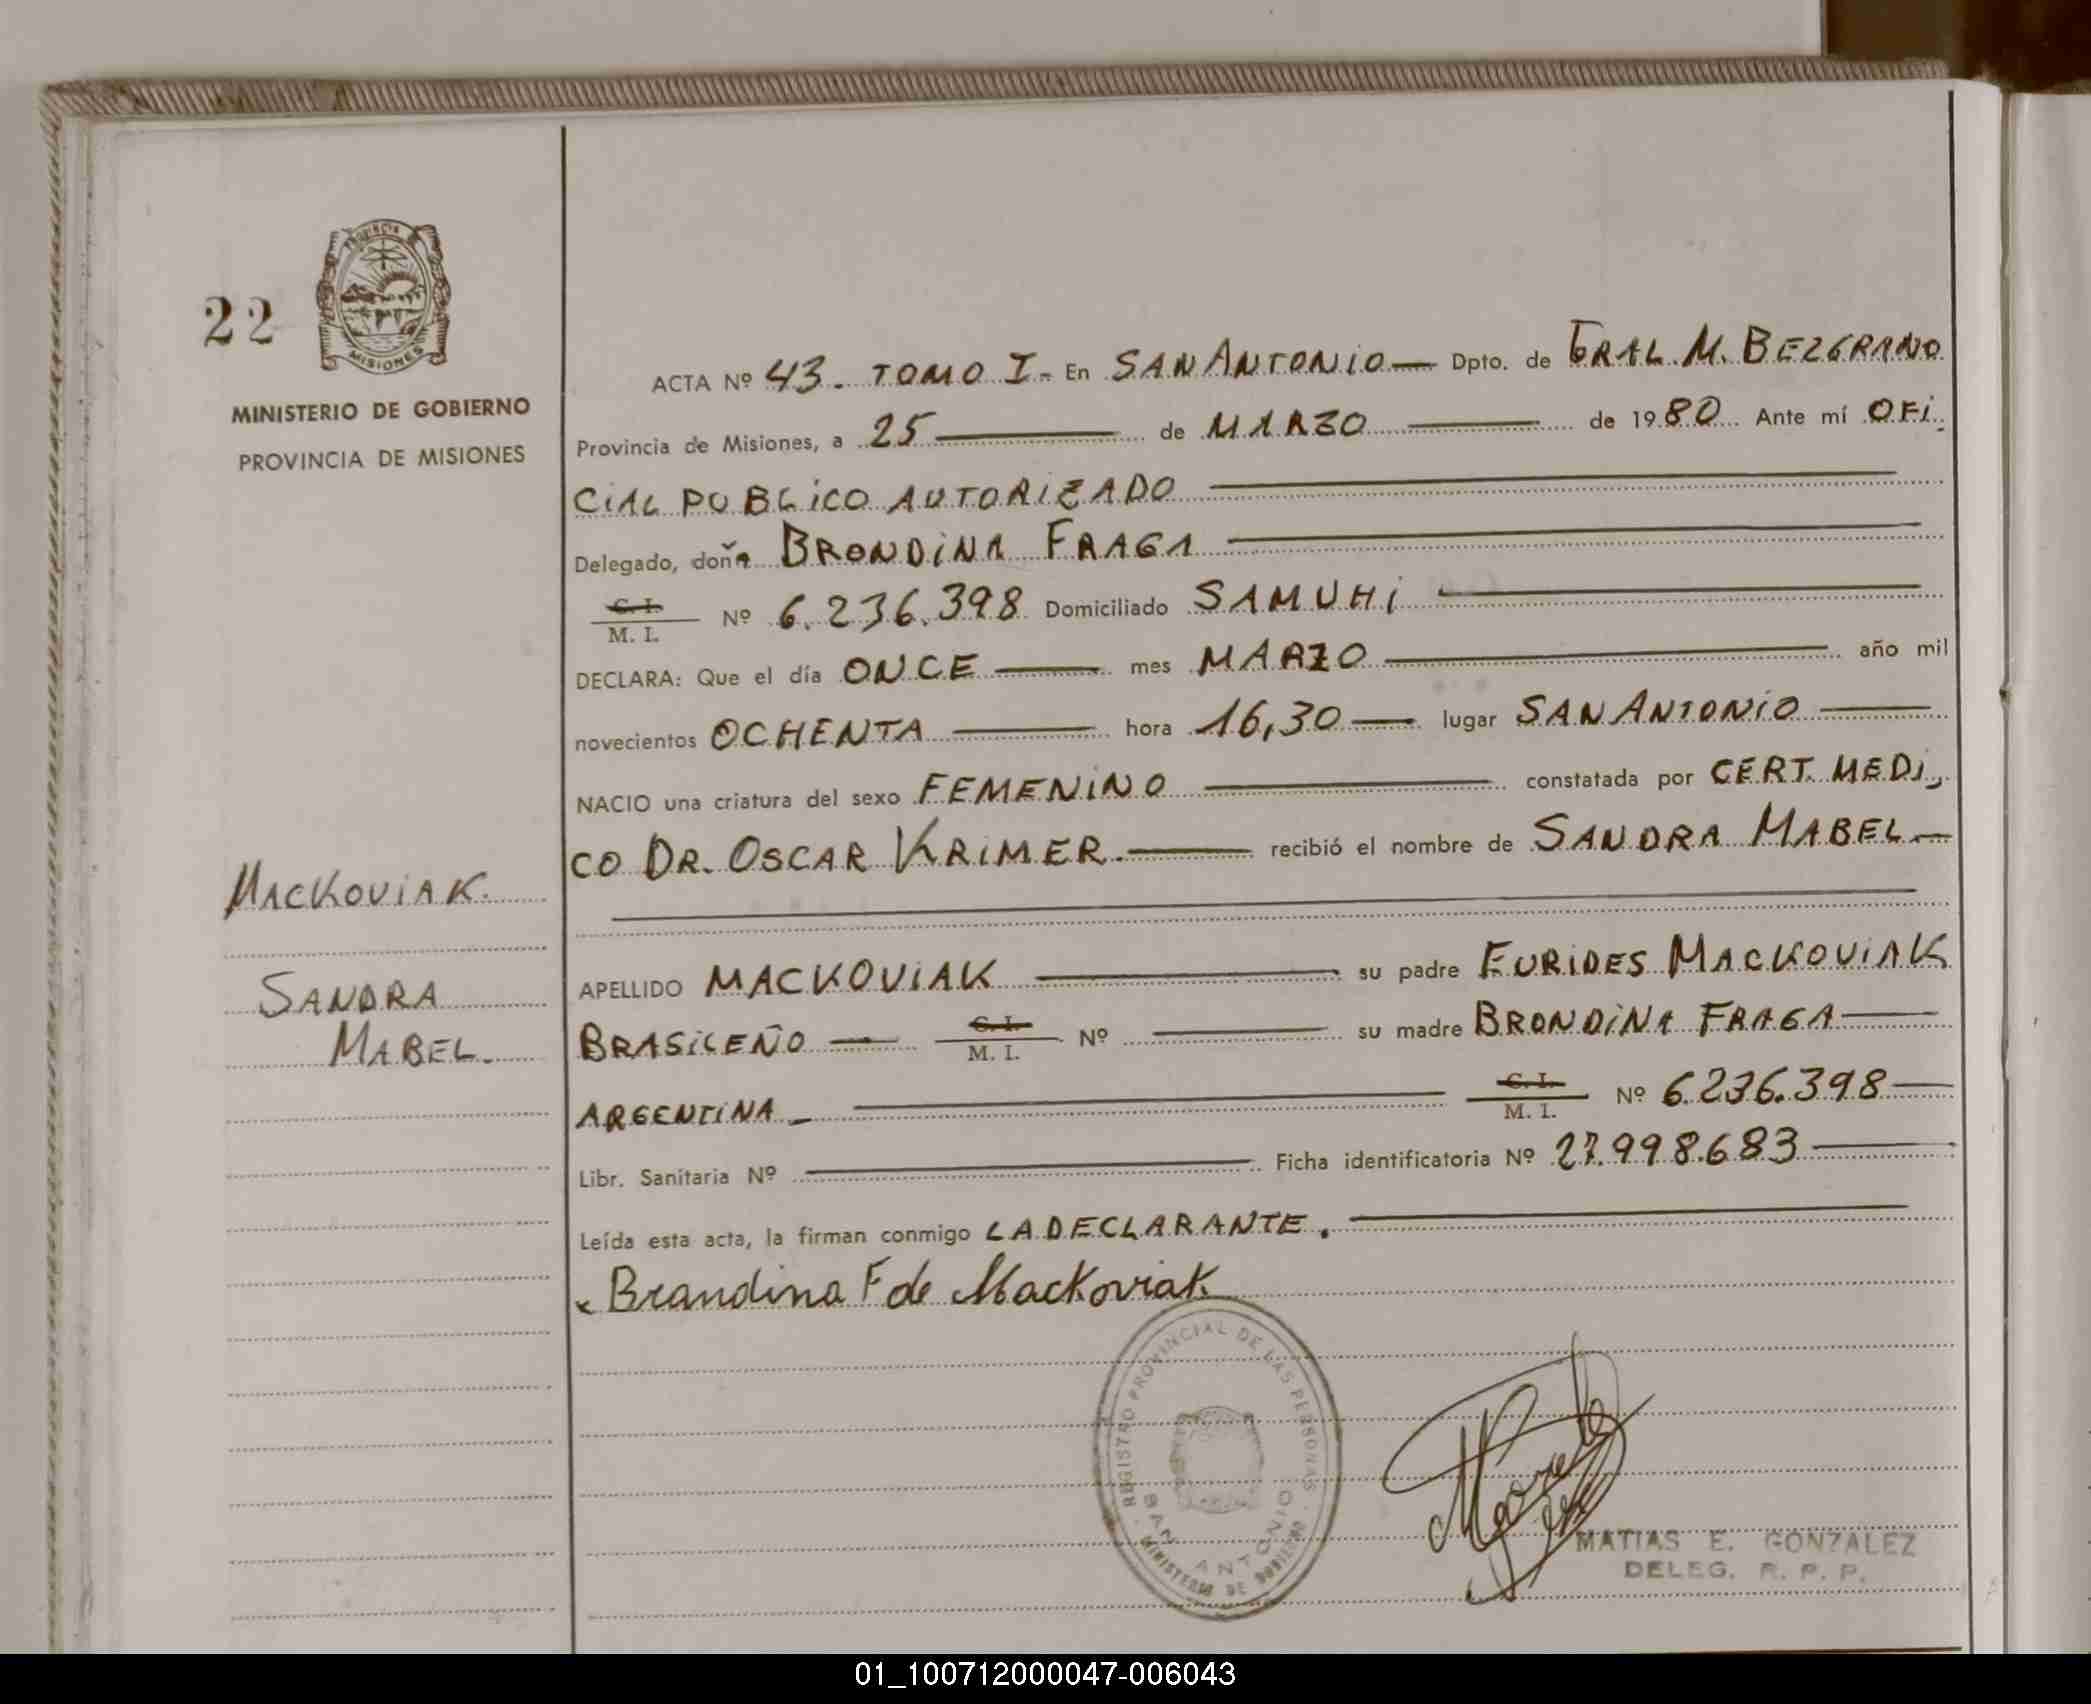 22
PROVINCIA DE
MISIONES
MINISTERIO DE GOBIERNO
PROVINCIA DE MISIONES
MACKOVIAK.
SANDRA
MABEL.
ACTA Nº 43. TOMO I.- En SAN ANTONIO — Dpto. de GRAL. M. BELGRANO
Provincia de Misiones, a 25 — de MARZO — de 1980 Ante mí OFI-
CIAL PUBLICO AUTORIZADO —
Delegado, doña BRONDINA FRAGA —
C. I. / M. I. Nº 6.236.398 Domiciliado SAMUHI —
DECLARA: Que el día ONCE — mes MARZO — año mil
novecientos OCHENTA — hora 16,30 — lugar SAN ANTONIO —
NACIO una criatura del sexo FEMENINO — constatada por CERT. MEDI-
CO DR. OSCAR KRIMER. — recibió el nombre de SANDRA MABEL —
APELLIDO MACKOVIAK — su padre EURIDES MACKOVIAK
BRASILEÑO — C. I. / M. I. Nº — su madre BRONDINA FRAGA —
ARGENTINA — C. I. / M. I. Nº 6.236.398 —
Libr. Sanitaria Nº — Ficha identificatoria Nº 27.998.683 —
Leída esta acta, la firman conmigo LA DECLARANTE. —
x Brandina F de Mackoviak
REGISTRO PROVINCIAL DE LAS PERSONAS
SAN ANTONIO
MINISTERIO DE GOBIERNO
MATIAS E. GONZALEZ
DELEG. R. P. P.
01_100712000047-006043